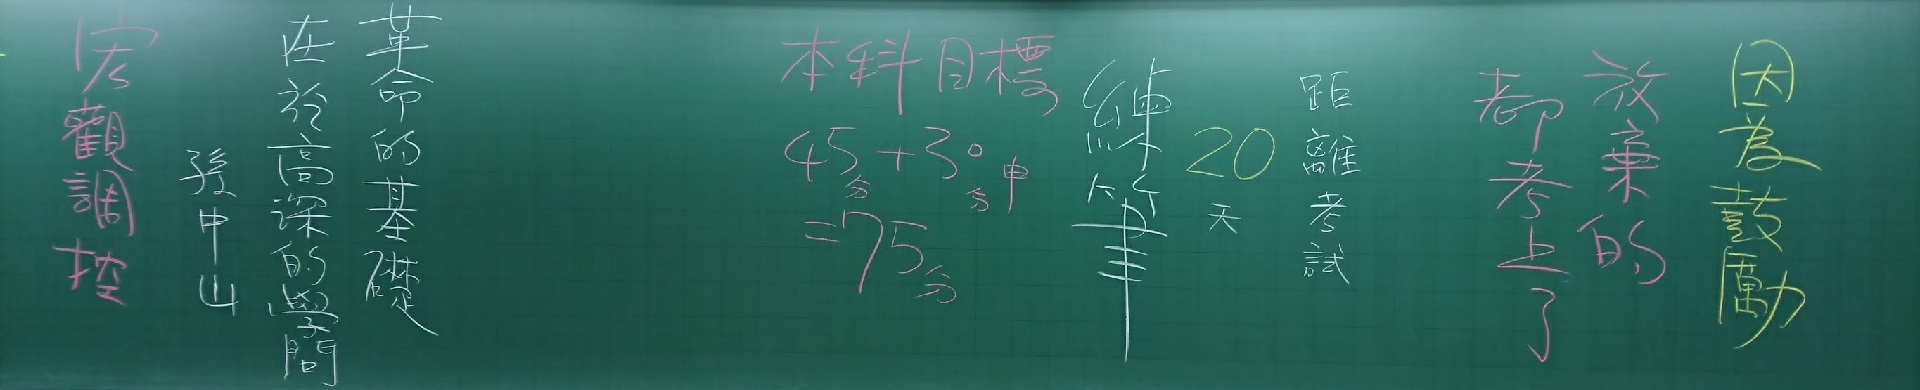 因為鼓勵
放棄的
都考上了
距離考試
20
天
練筆
本科目標
45分+30分申
=75分
革命的基礎
在於高深的學問
孫中山
宏觀調控